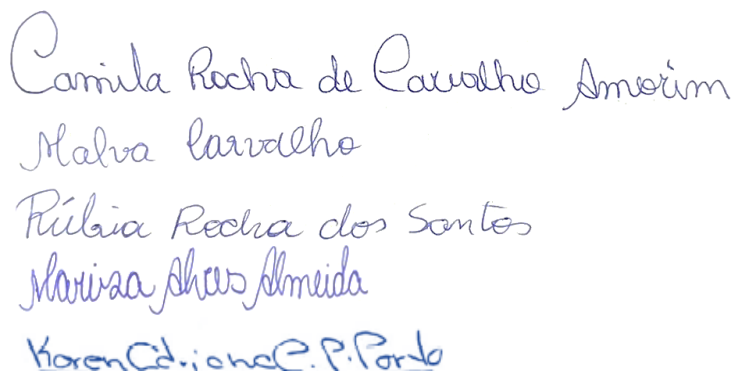 Camila Rocha de Carvalho Amorim
Malva Carvalho
Rúbia Rocha dos Santos
Mariza Alves Almeida
Karen Adriana C. P. Pardo